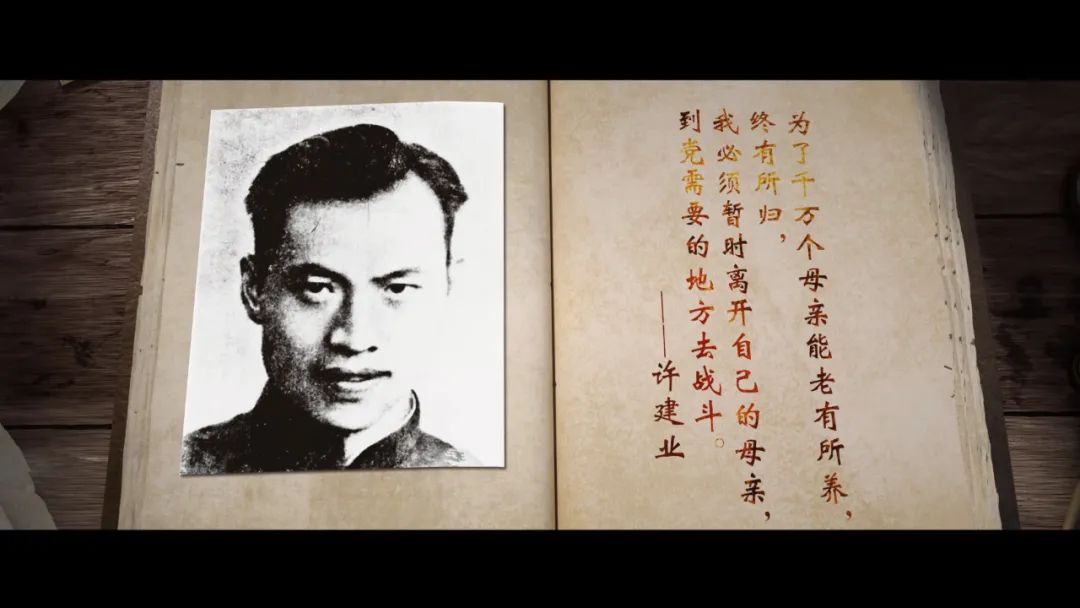 为了千万个母亲能老有所养，
终有所归，
我必须暂时离开自己的母亲，
到党需要的地方去战斗。
——许建业